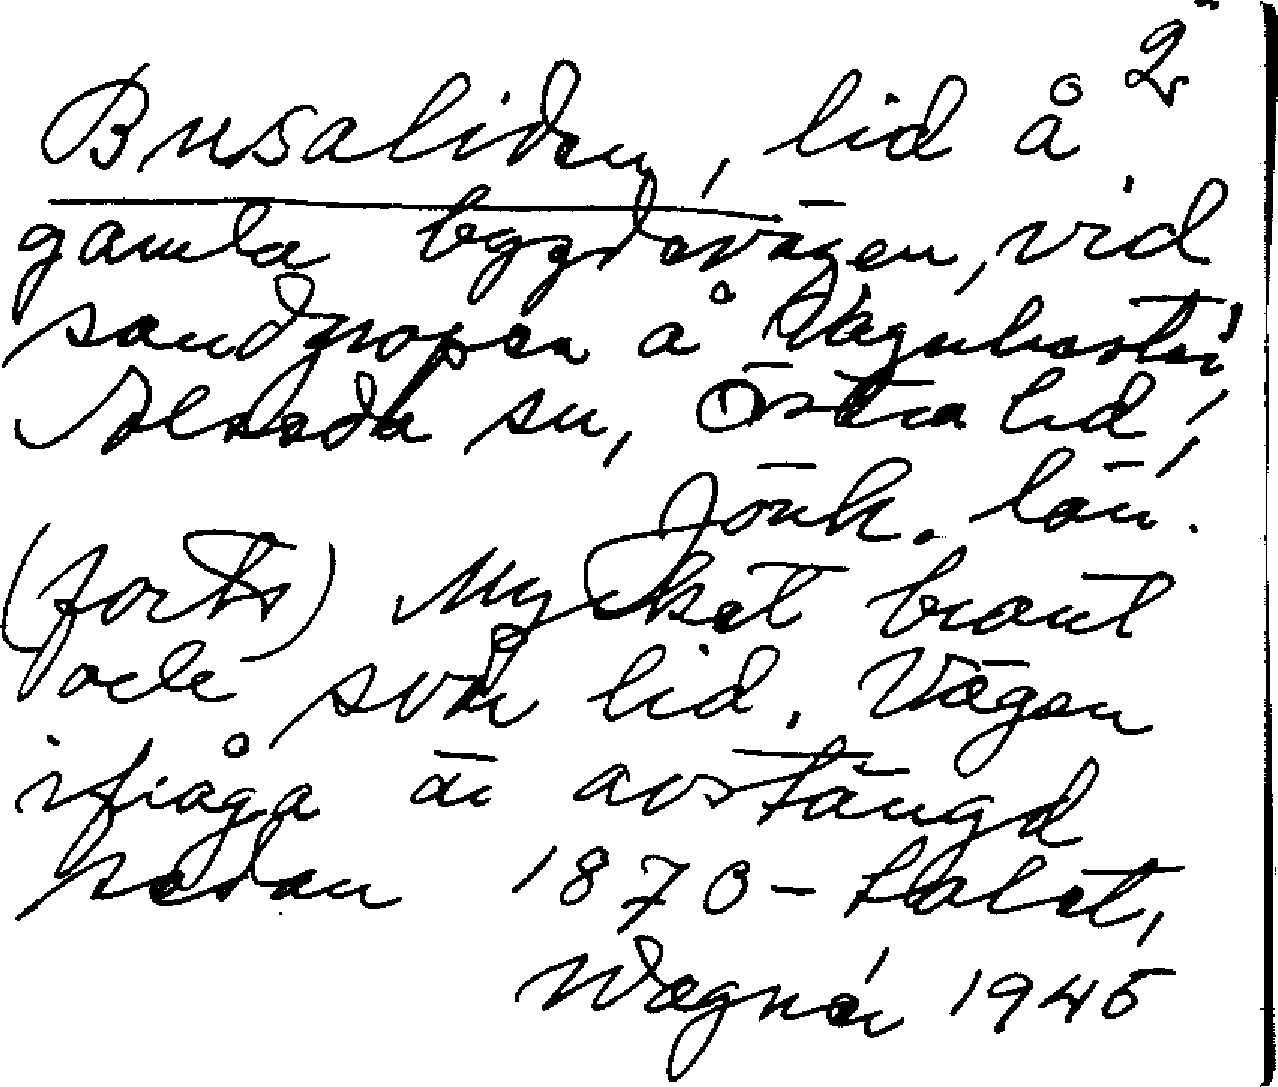 2
Busaliden, lid å
gamla bygdevägen, vid
sandgropen å
Alseda sn, Östra hd,
Jönk. län.
(forts) Mycket brant
och svår lid. Vägen
ifråga är avstängd
sedan 1870-talet,
Wagnér 1945